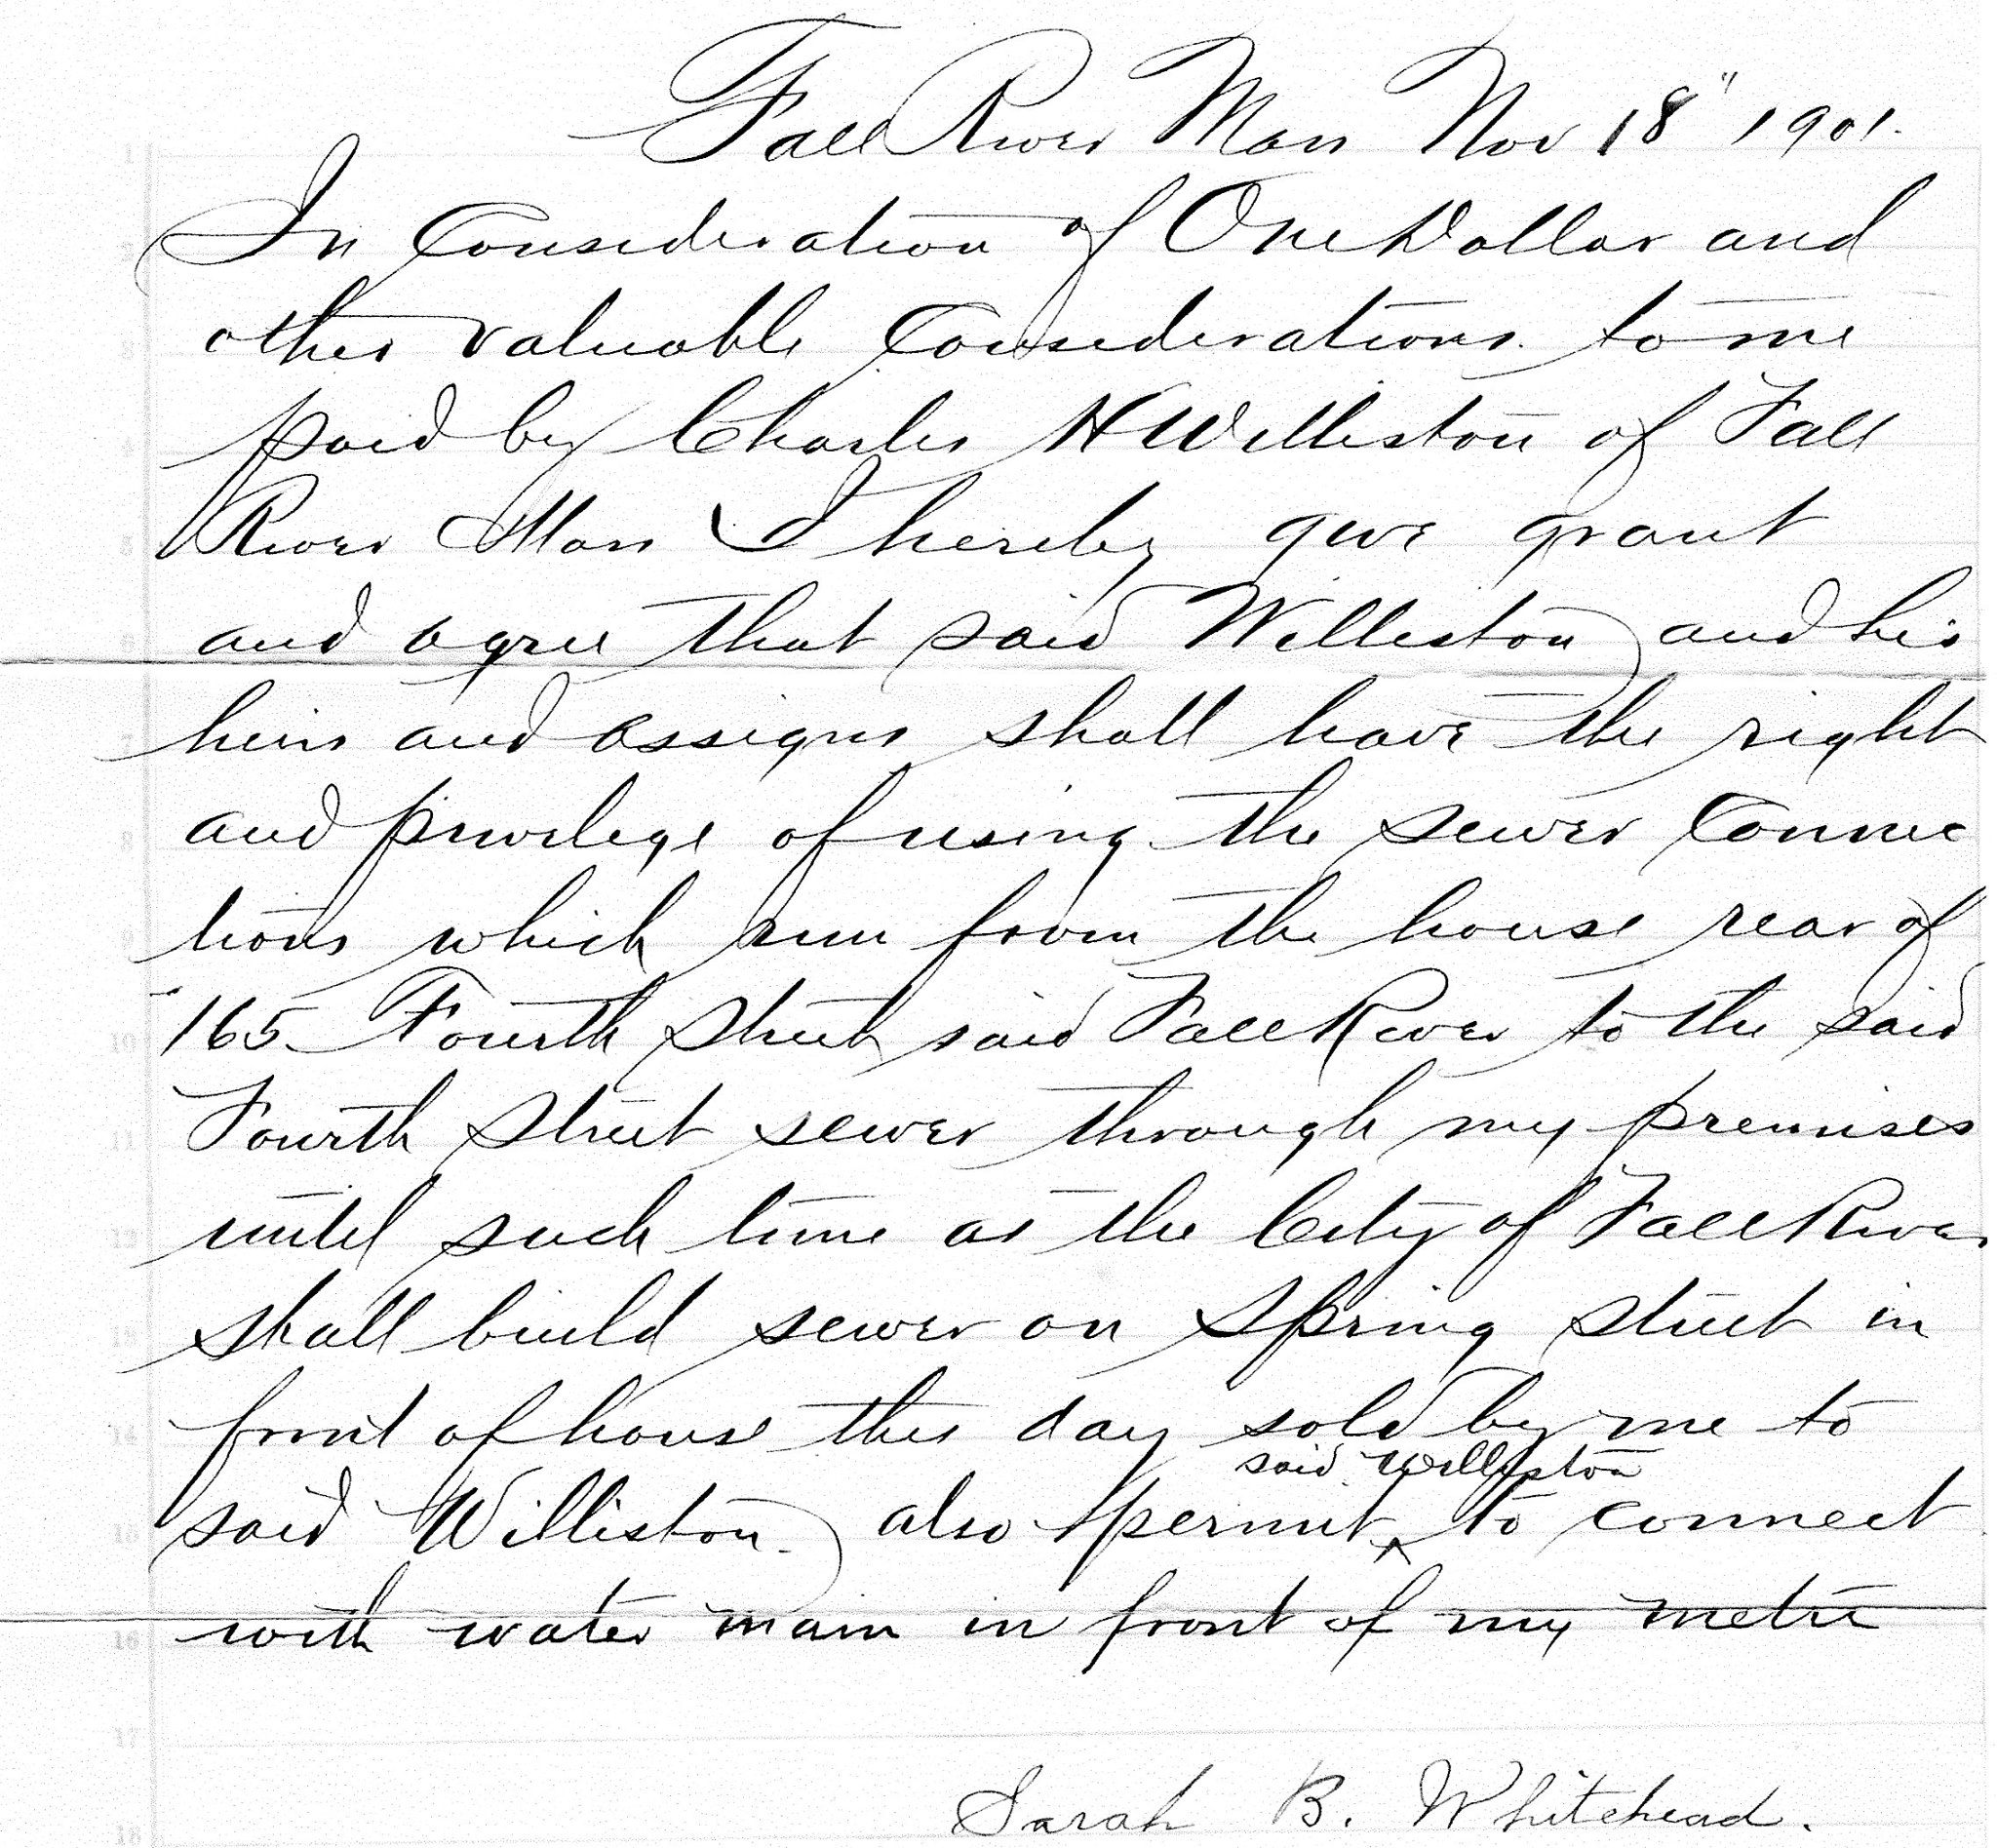 Fall River Mass Nov 18" 1901.
In Consideration of One Dollar and
other valuable Considerations to me
paid by Charles H Williston of Fall
River Mass I hereby give grant
and agree that said Williston and his
heirs and assigns shall have the right
and privilege of using the sewer Connec
tions which run from the house rear of
165 Fourth Street said Fall River to the said
Fourth Street sewer through my premises
until such time as the City of Fall River
shall build sewer on Spring Street in
front of house this day sold by me to
said Williston
said Williston. also permit ^ to connect
with water main in front of my metre
Sarah B. Whitehead.
1
2
3
4
5
6
7
8
9
10
11
12
13
14
15
16
17
18